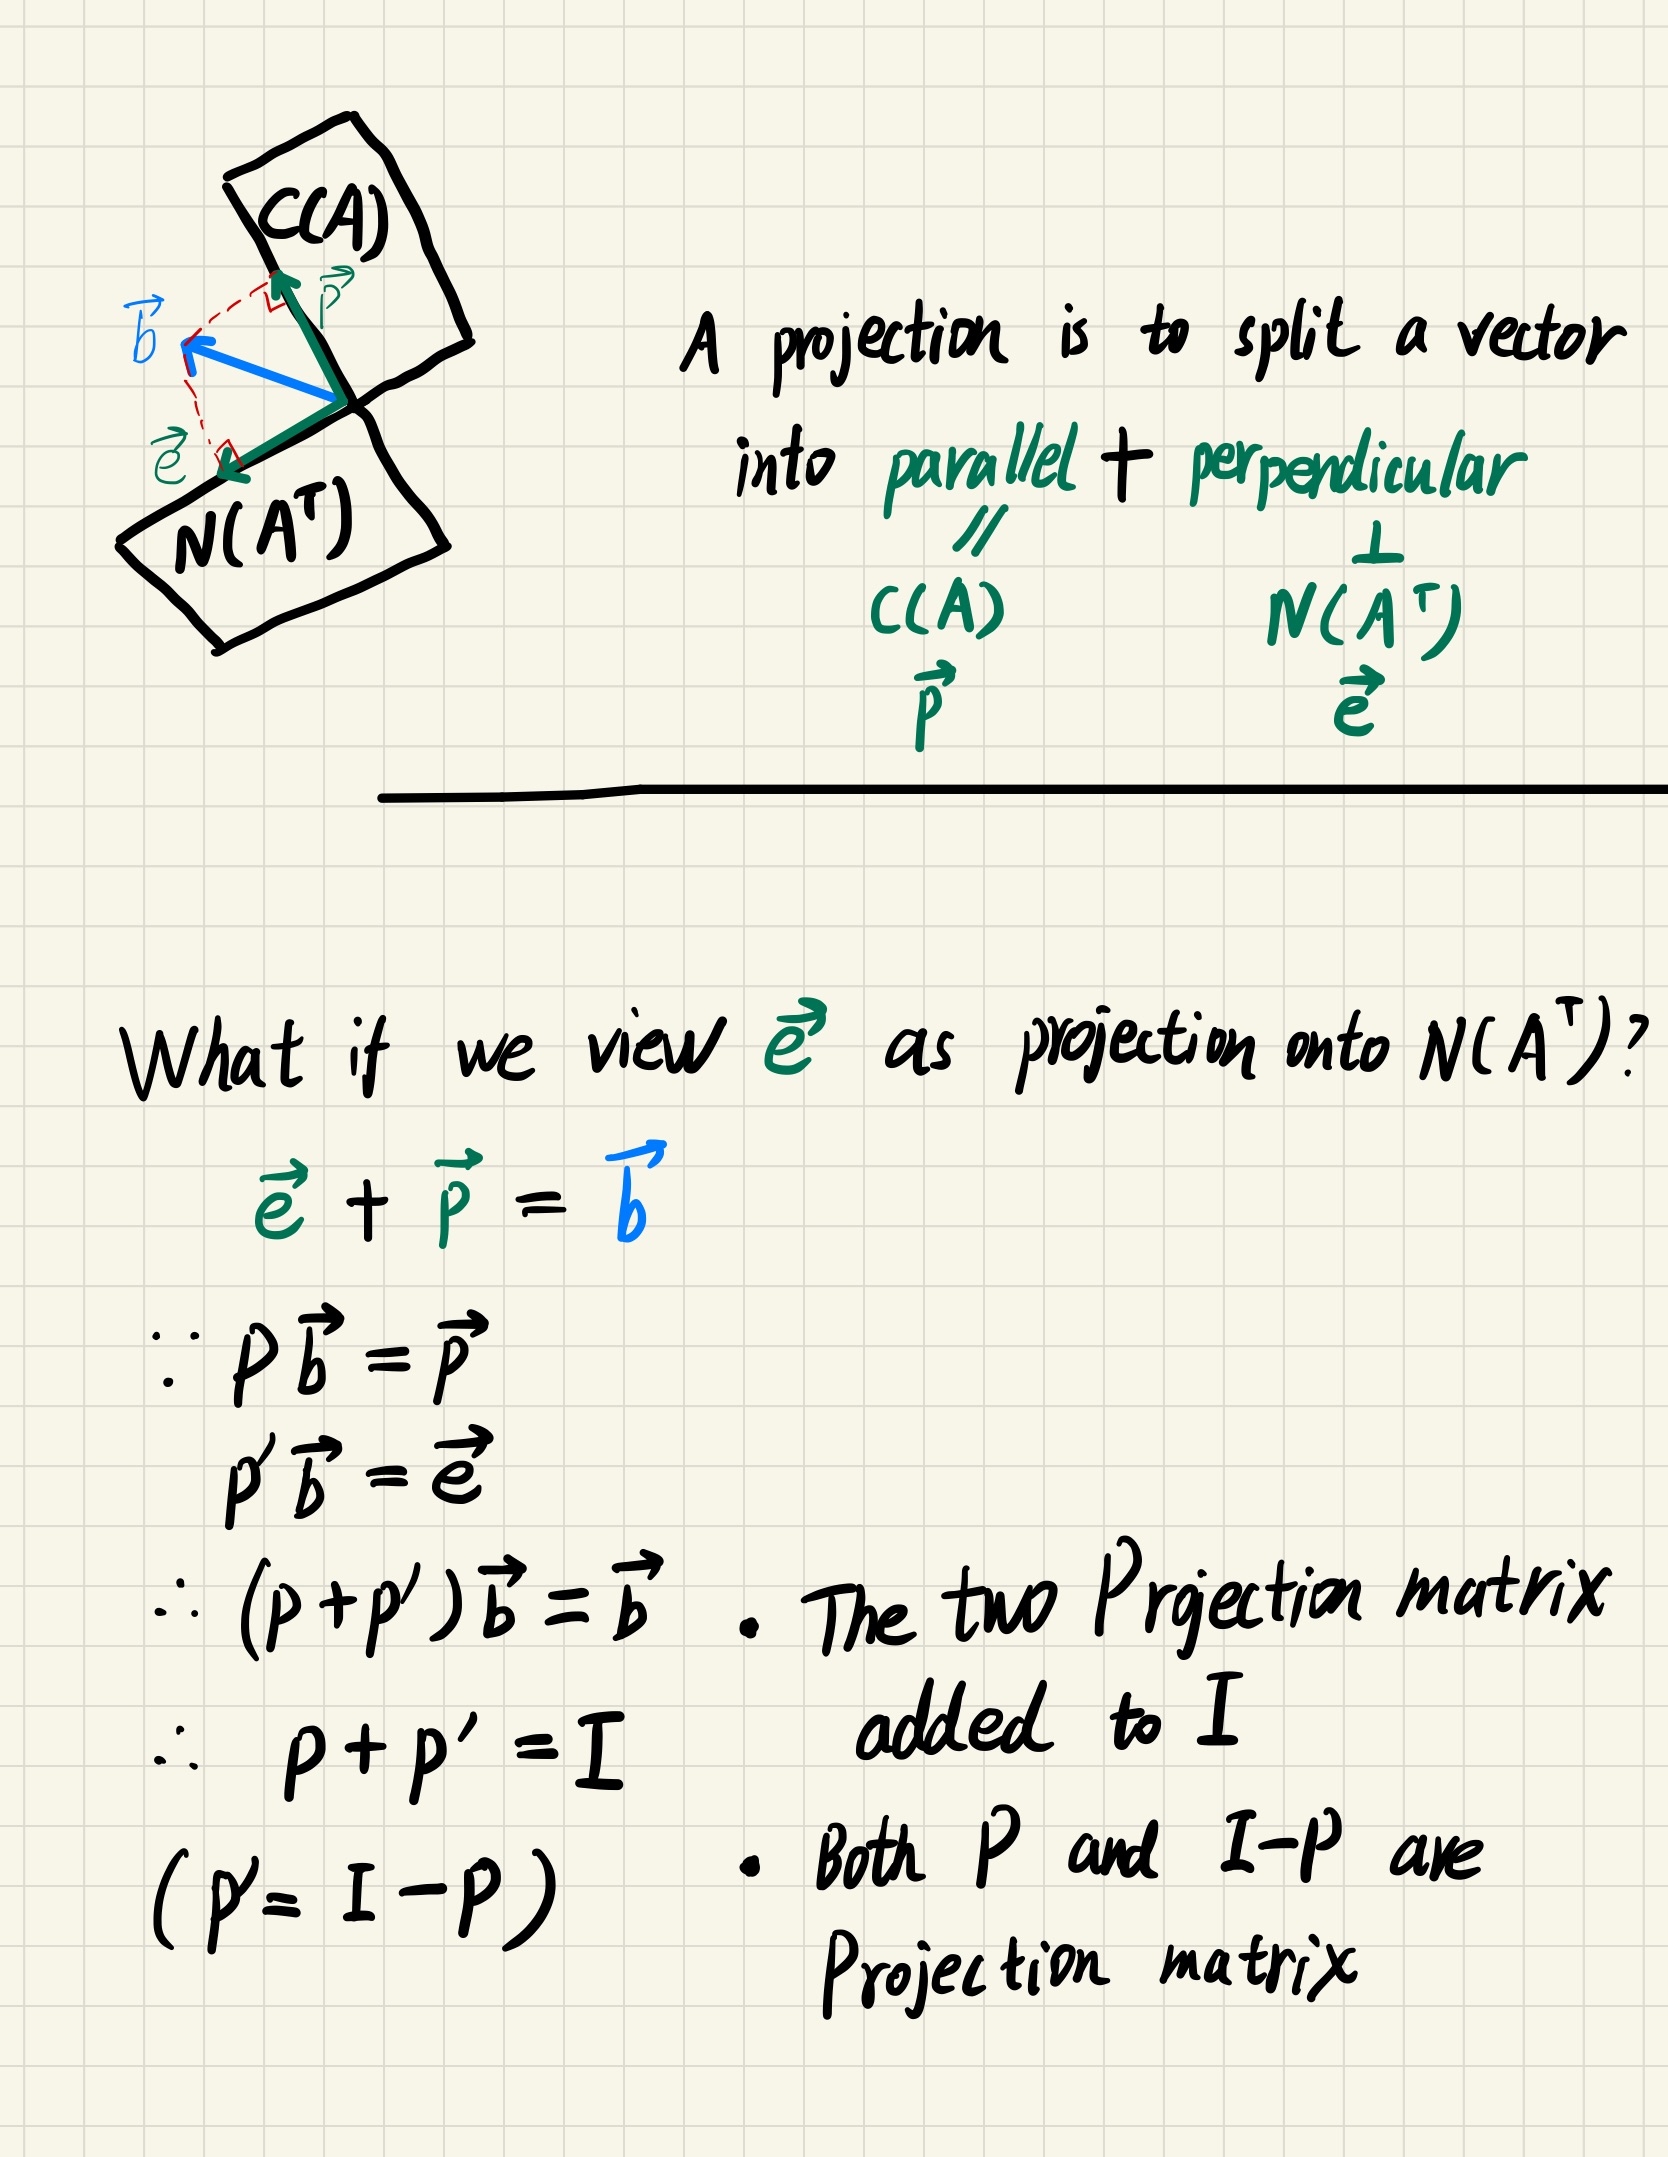 C(A)
p⃗
b⃗
e⃗
N(Aᵀ)
A projection is to split a vector
into parallel + perpendicular
// ⊥
C(A) N(Aᵀ)
p⃗ e⃗
What if we view e⃗ as projection onto N(Aᵀ)?
e⃗ + p⃗ = b⃗
∵ Pb⃗ = p⃗
P′b⃗ = e⃗
∴ (P+P′)b⃗ = b⃗
∴ P+P′ = I
(P′= I-P)
• The two Projection matrix
added to I
• Both P and I-P are
Projection matrix